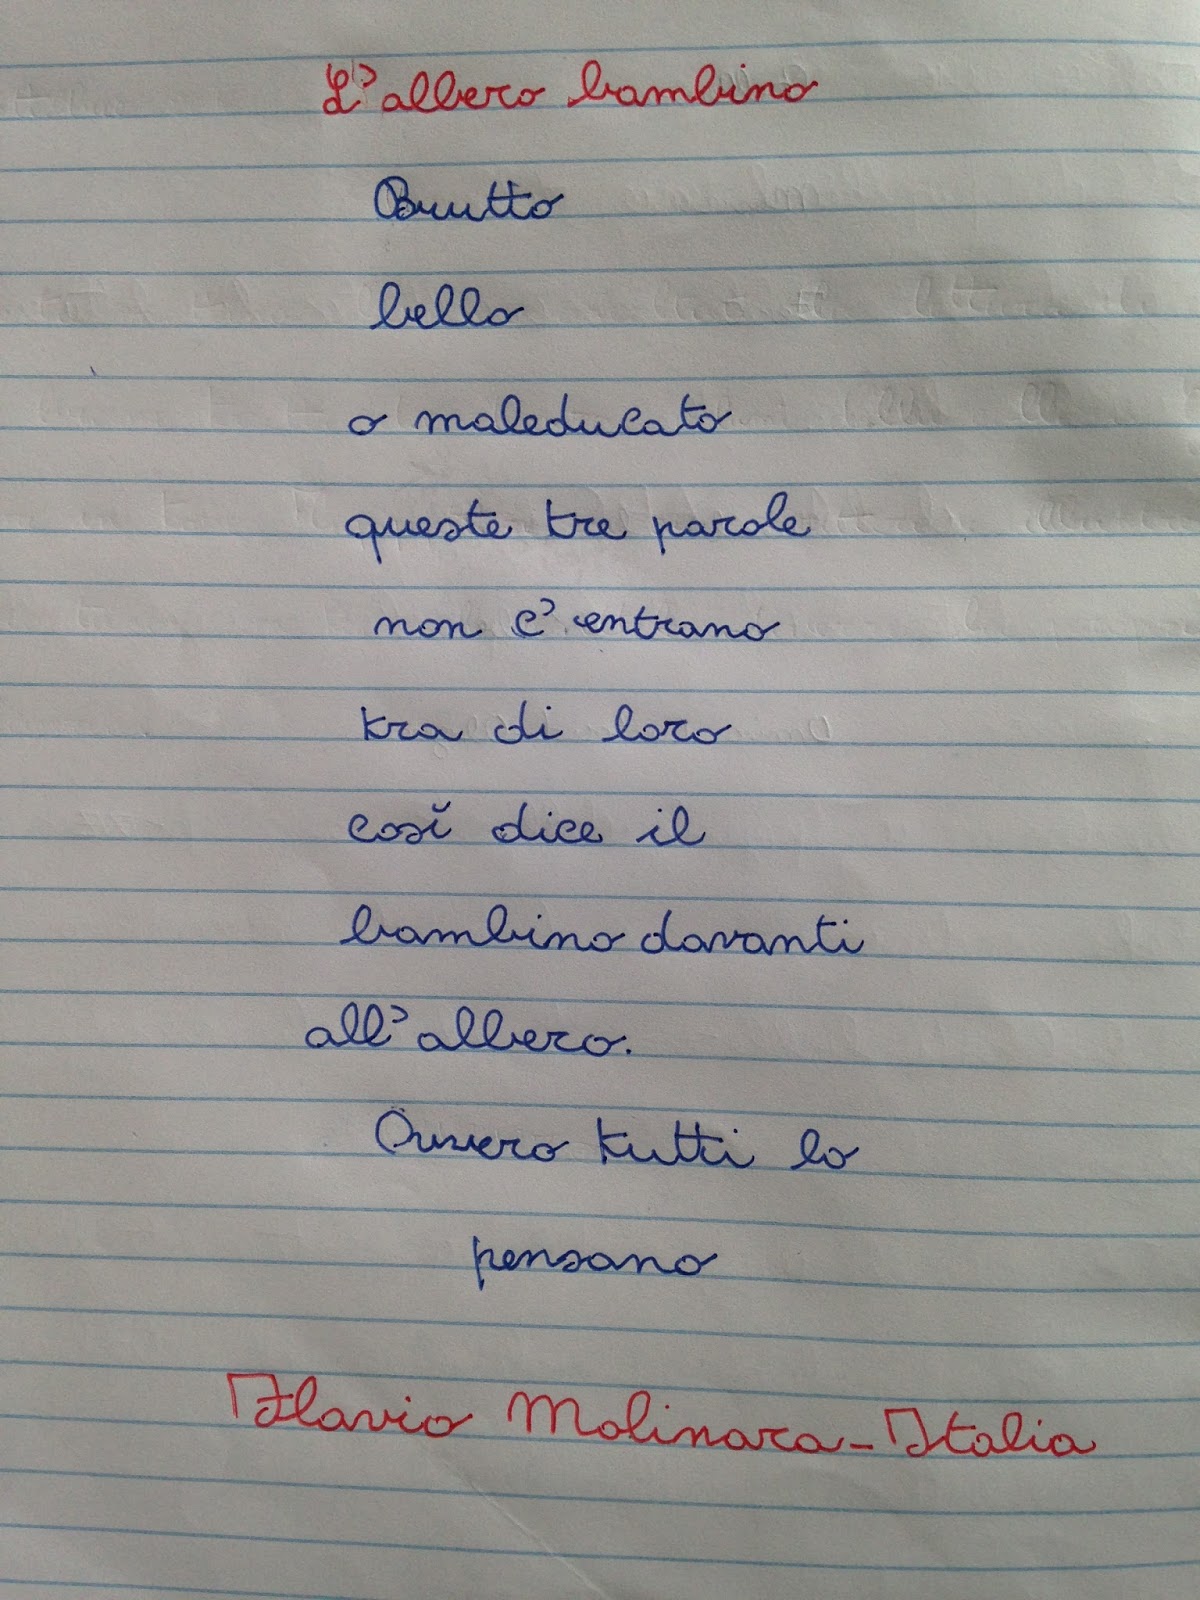 L'albero bambino
Brutto
bello
o maleducato
queste tre parole
non c'entrano
tra di loro
così dice il
bambino davanti
all'albero.
Ovvero tutti lo
pensano
Flavio Molinara-Italia